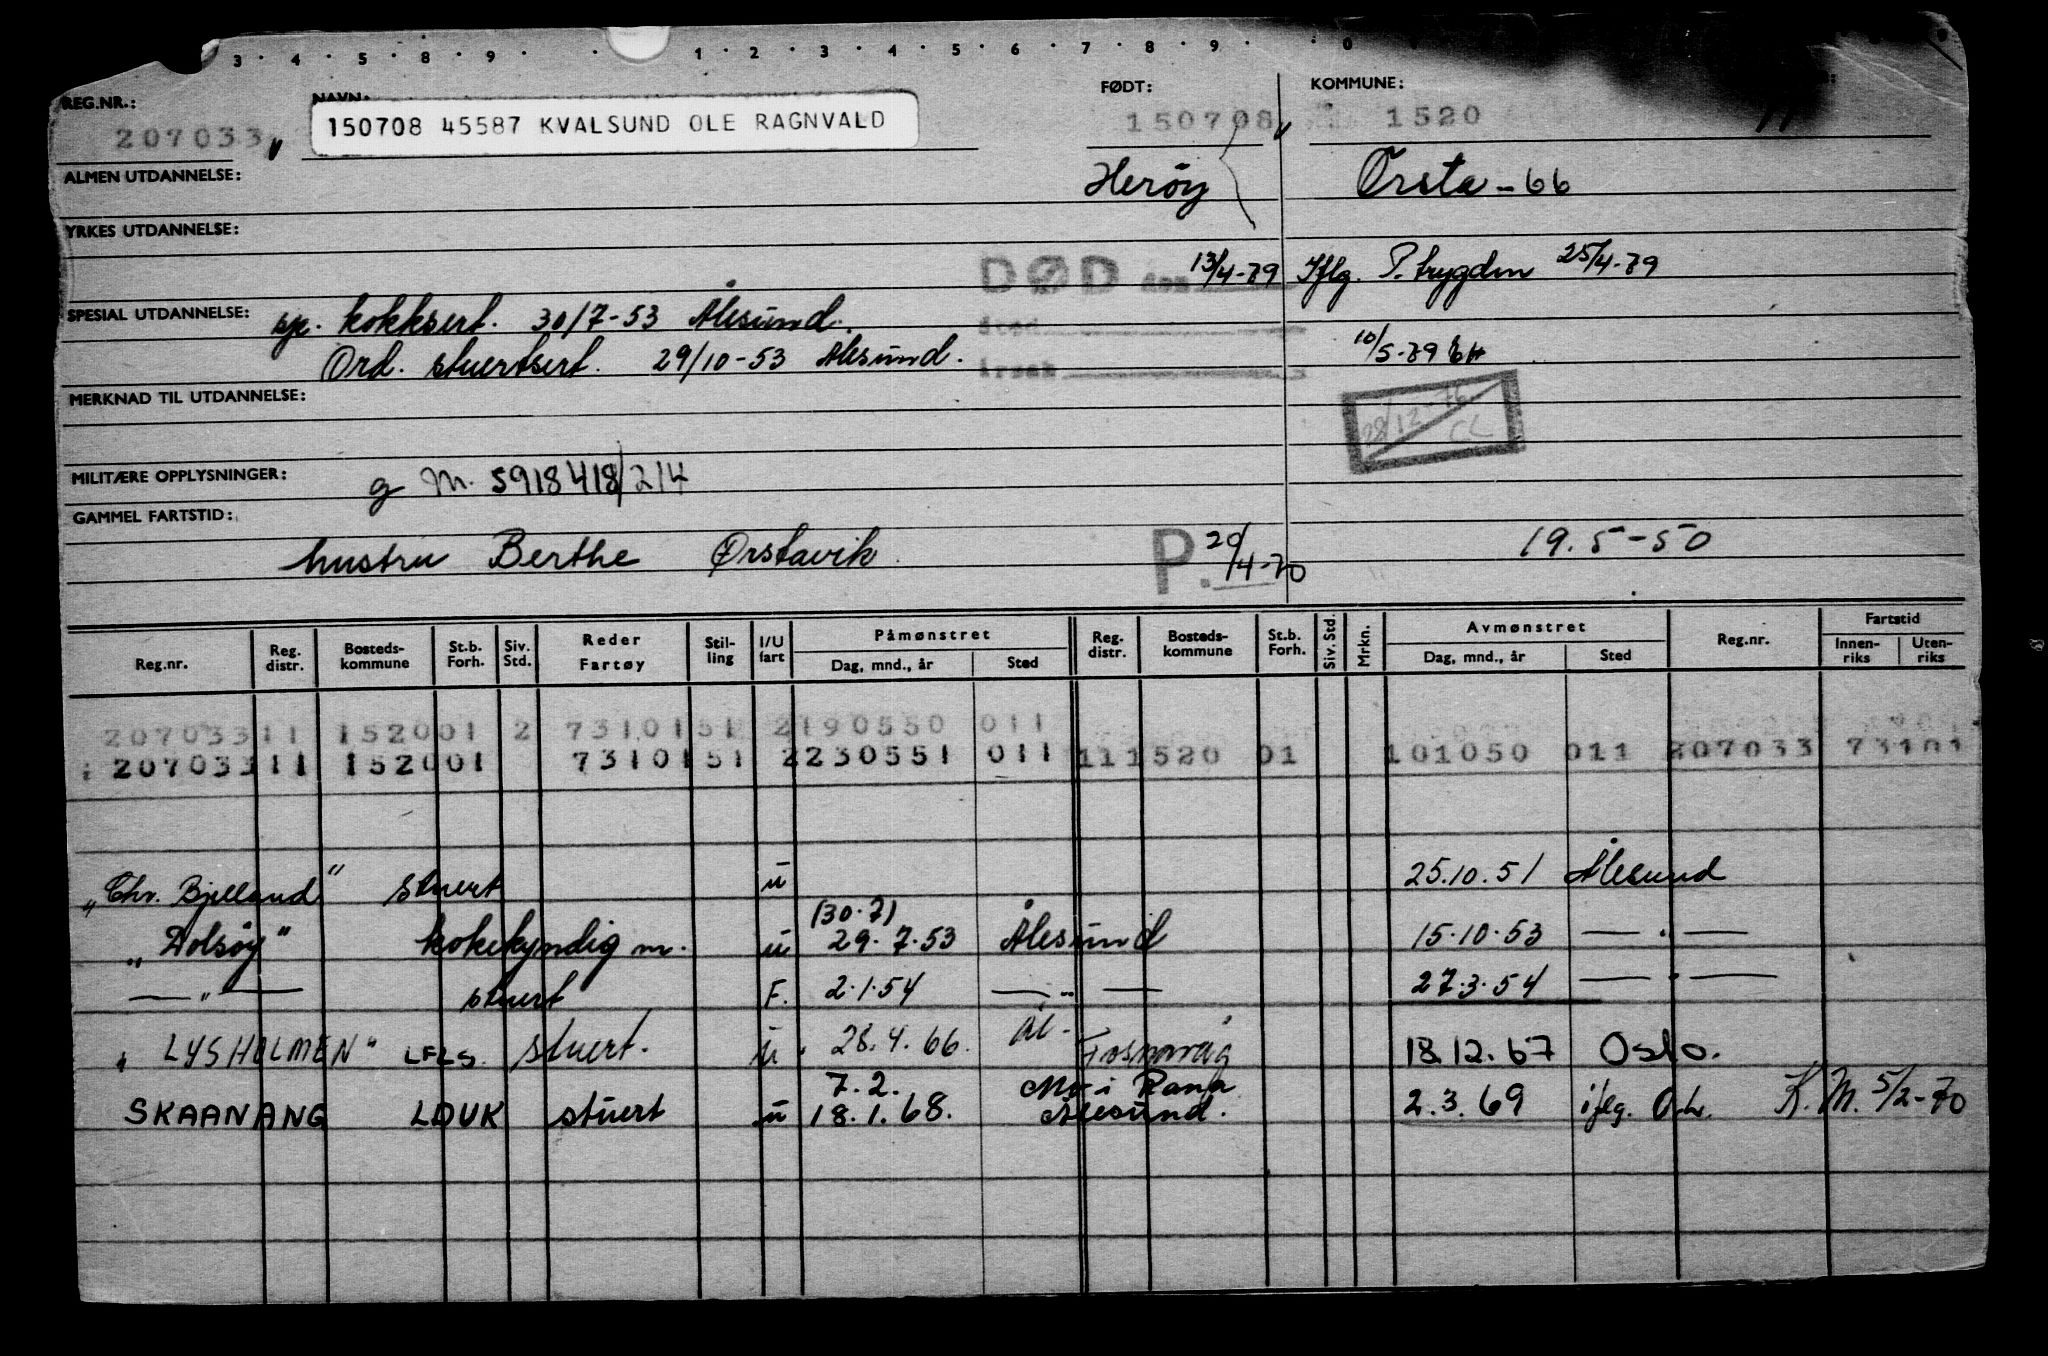 3 · 4 · 5 · 8 · 9 · · 1 · 2 · 3 · 4 · 5 · 6 · 7 · 8 · 9 · · 0
REG.NR.: NAVN: FØDT: KOMMUNE:
207033 150708 45587 KVALSUND OLE RAGNVALD 150708 1520
ALMEN UTDANNELSE: Herøy Ørsta - 66
YRKES UTDANNELSE:
DØD den 13/4-79 Iflg. P. trygden 25/4-79
SPESIAL UTDANNELSE: sje. kokksert. 30/7-53 Ålesund. Sted
Ord. stuertsert. 29/10-53 Ålesund. Årsak 10/5-79
MERKNAD TIL UTDANNELSE: 28/12-76 CL
MILITÆRE OPPLYSNINGER: g m. 5918418/214
GAMMEL FARTSTID:
hustru Berthe Ørstavik. P. 20/4-70 19.5-50
Reg.nr. Reg. distr. Bosteds-kommune St.b. Forh. Siv. Std. Reder Fartøy Stil-ling I/U fart Påmønstret Dag, mnd., år Sted Reg. distr. Bosteds-kommune St.b. Forh. Siv. Std. Mrkn. Avmønstret Dag, mnd., år Sted Reg.nr. Fartstid Innen-riks Uten-riks
207033 11 152001 2 7310151 2190550 011
207033 11 152001 7310151 2230551 011 111520 01 101050 011 207033 73101
„Chr. Bjelland" stuert u 25.10.51 Ålesund
(30.7)
„Dolsøy" kokekyndig m. u 29.7.53 Ålesund 15.10.53 — „ —
— „ — stuert F. 2.1.54 — „ — 27.3.54 — „ —
„LYSHOLMEN" LFLS. stuert. u. 28.4.66. Ål- Fosnavåg 18.12.67 Oslo.
7.2. Mo i Rana
SKAANANG LDUK stuert u 18.1.68. Ålesund. 2.3.69 iflg. K.M. 5/2-70